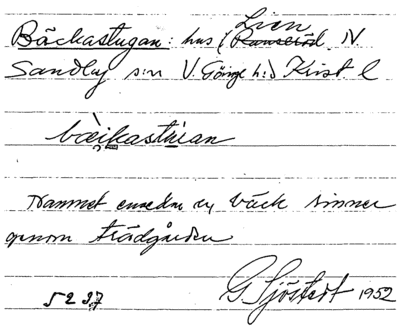 Lien
Bäckastugan: hus i Ranseröd N
Sandby sn V. Göinge hd Krist. l
bæikastuian
Namnet enedan en bäck rinner
genom trädgården
5237
G. Sjöstedt 1952